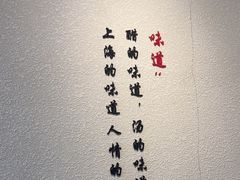 味道"
醋的味道，汤的味道
上海的味道人情的